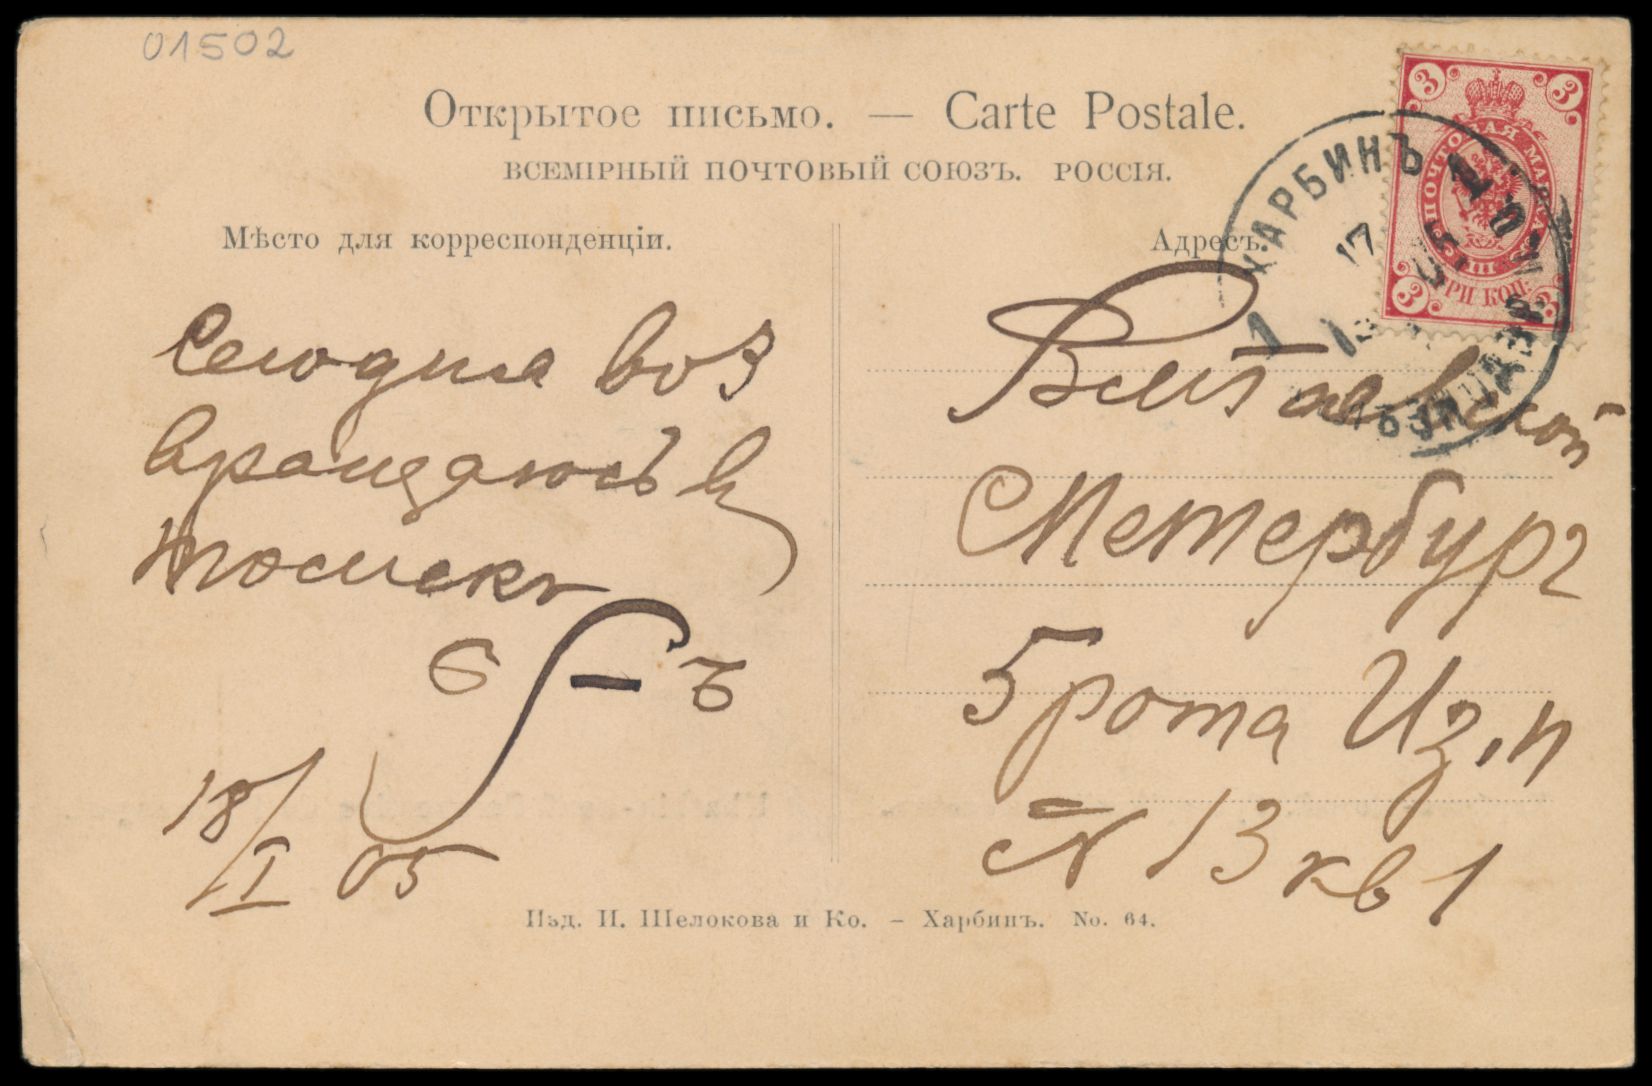 01502
Открытое письмо. — Carte Postale.
ВСЕМІРНЫЙ ПОЧТОВЫЙ СОЮЗЪ. РОССІЯ.
Мѣсто для корреспонденціи.
Адресъ.
3 3
ПОЧТОВАЯ МАРКА
ТРИ КОП.
3 3
ХАРБИНЪ
17
1
Сегодня воз
вращаюсь в
18/I 05
Петербург
5 рота Из. п
№ 13 кв 1
Изд. И. Щелокова и Ко. – Харбинъ. No. 64.